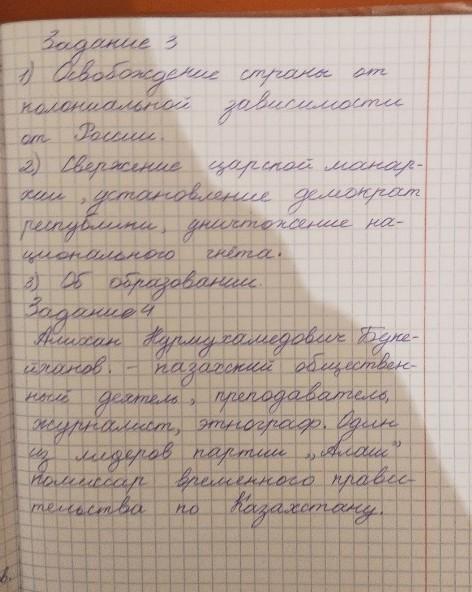 Задание 3
1) Освобождение страны от
колониальной зависимости
от России.
2) Свержение царской манар-
хии, установление демократ
республики, уничтожение на-
ционального гнёта.
3) Об образовании.
Задание 4
Алихан Нурмухамедович Буке-
йханов. - казахский обществен-
ный деятель, преподаватель,
журналист, этнограф. Один
из лидеров партии „Алаш"
комиссар временного прави-
тельства по Казахстану.